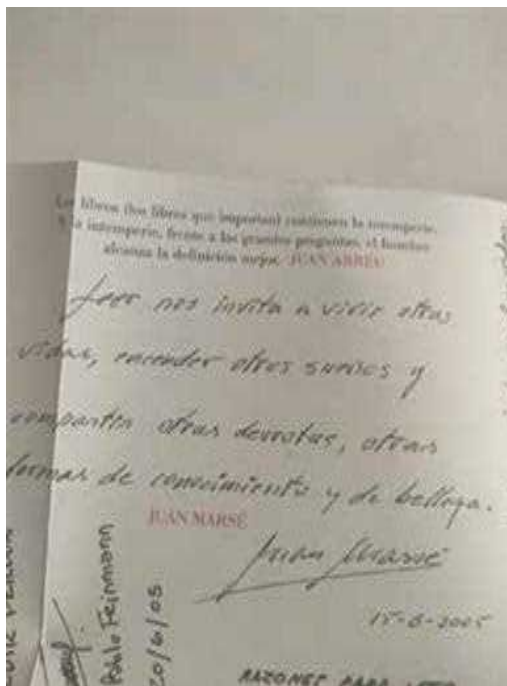 Los libros (los libros que importan) contienen la intemperie.
Y a la intemperie, frente a las grandes preguntas, el hombre
alcanza la definición mejor. JUAN ABREU
Leer nos invita a vivir otras
vidas, encender otros sueños y
compartir otras derrotas, otras
formas de conocimiento y de belleza.
JUAN MARSÉ
Juan Marsé
15-6-2005
Pablo Feinmann
20/6/05
RAZONES PARA LEER